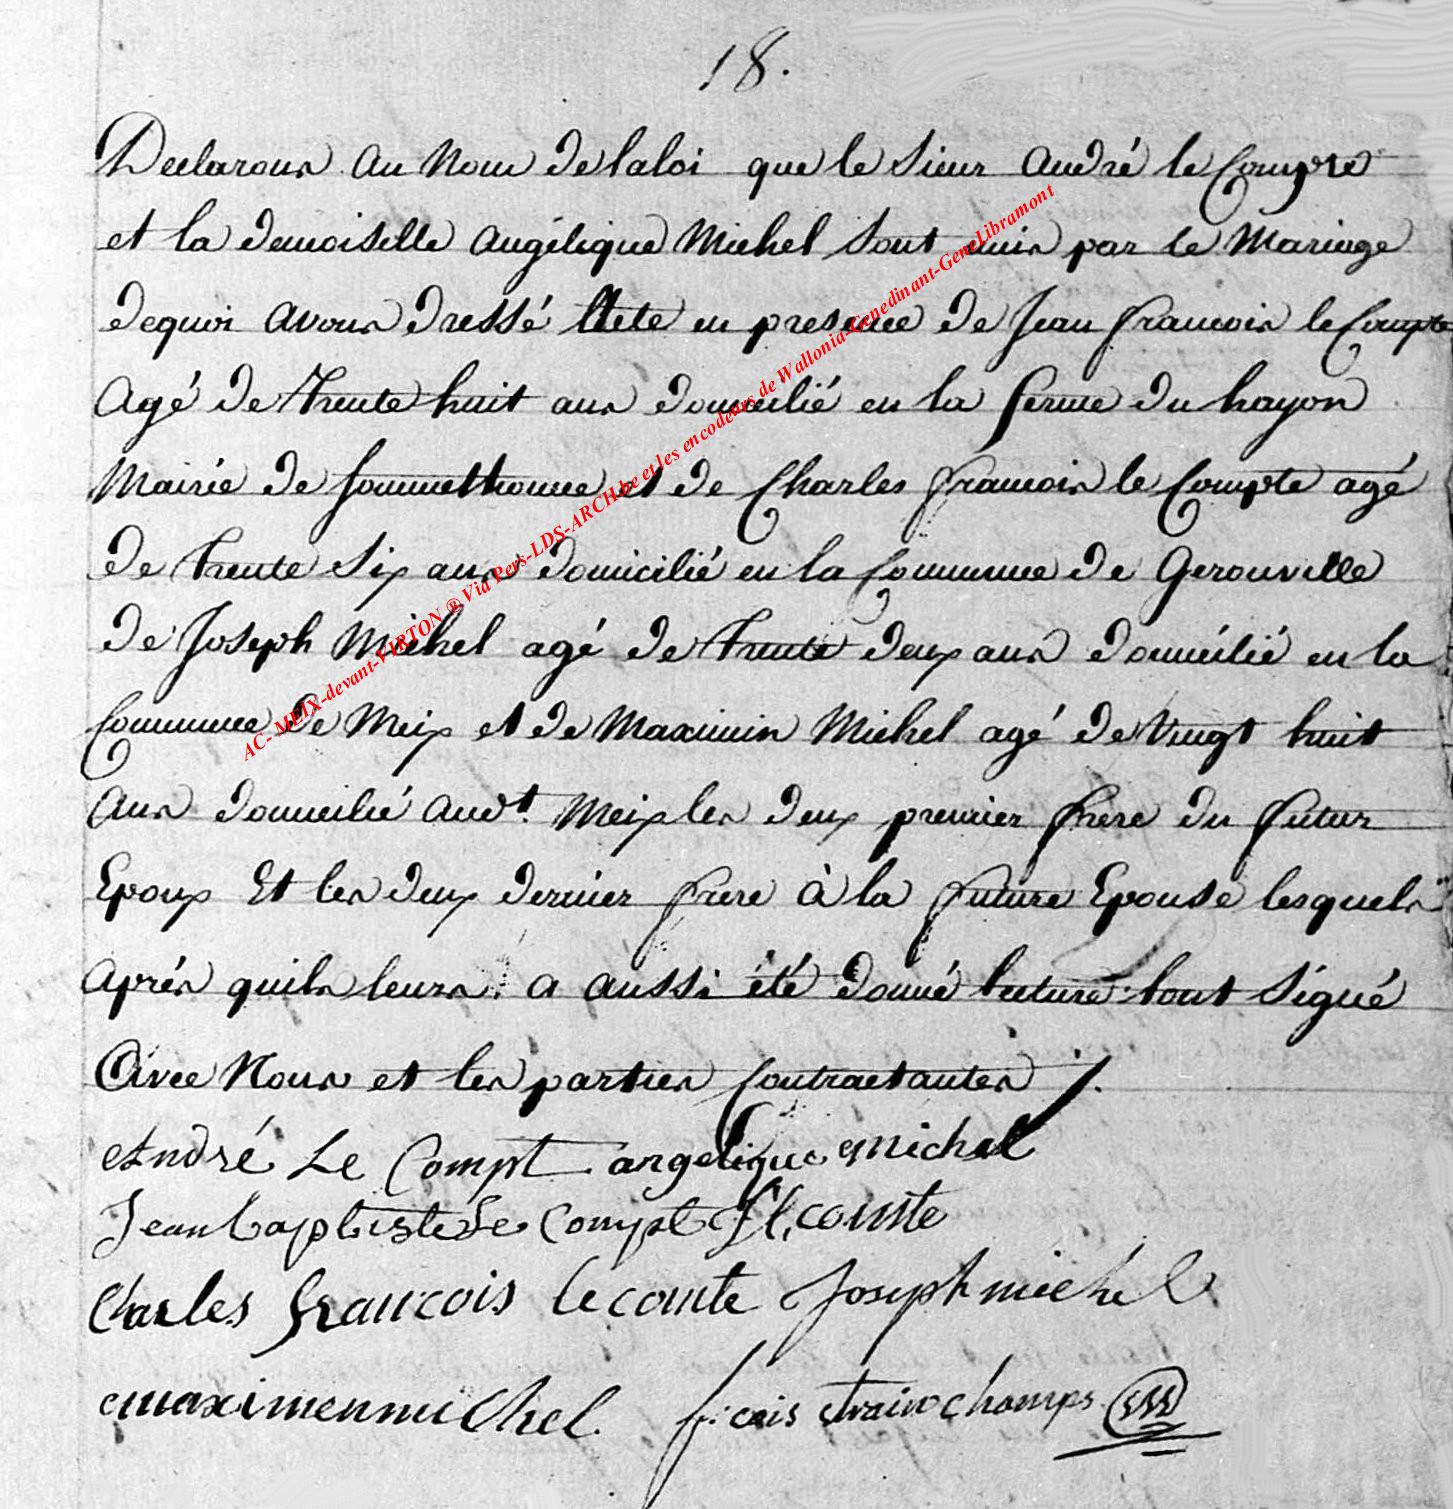 18.
Declarons au Nom de la loi que le Sieur André le Compte
et la demoiselle angélique Michel Sont unis par le Mariage
dequoi avons dressé Acte en presence de Jean francois le Compte
agé de Trente huit ans domicilié en la ferme du hayon
Mairie de Sommethonne et de Charles francois le Compte agé
de Trente Six ans domicilié en la Commune de Gerouville
de Joseph Michel agé de Trente deux ans domicilié en la
Commune de Meix et de Maximin Michel agé de Vingt huit
ans domicilié audt. Meix les deux premier frere du futur
Epoux Et les deux dernier frere à la future Epouse lesquels
aprés quils leurs a aussi été donné lecture tout Signé
Avec Nous et les parties Contractantes ./.
André Le Compt angelique Michel
Jean baptiste Le Compt JLecomte
Charles francois lecomte Joseph michel
maximen michel. f: cois trainchamps
AC- MEIX-devant-VIRTON ® Via Pers-LDS-ARCH.be et les encodeurs de Wallonia-Genedinant-GeneLibramont